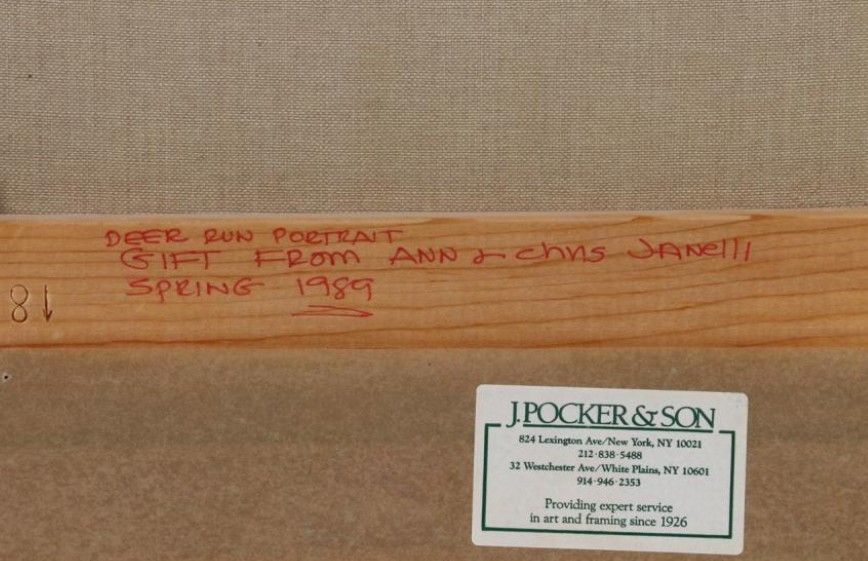 DEER RUN PORTRAIT
GIFT FROM ANN & Chris JANelli
SPRING 1989
18
J. POCKER & SON
824 Lexington Ave/New York, NY 10021
212·838·5488
32 Westchester Ave/White Plains, NY 10601
914·946·2353
Providing expert service
in art and framing since 1926